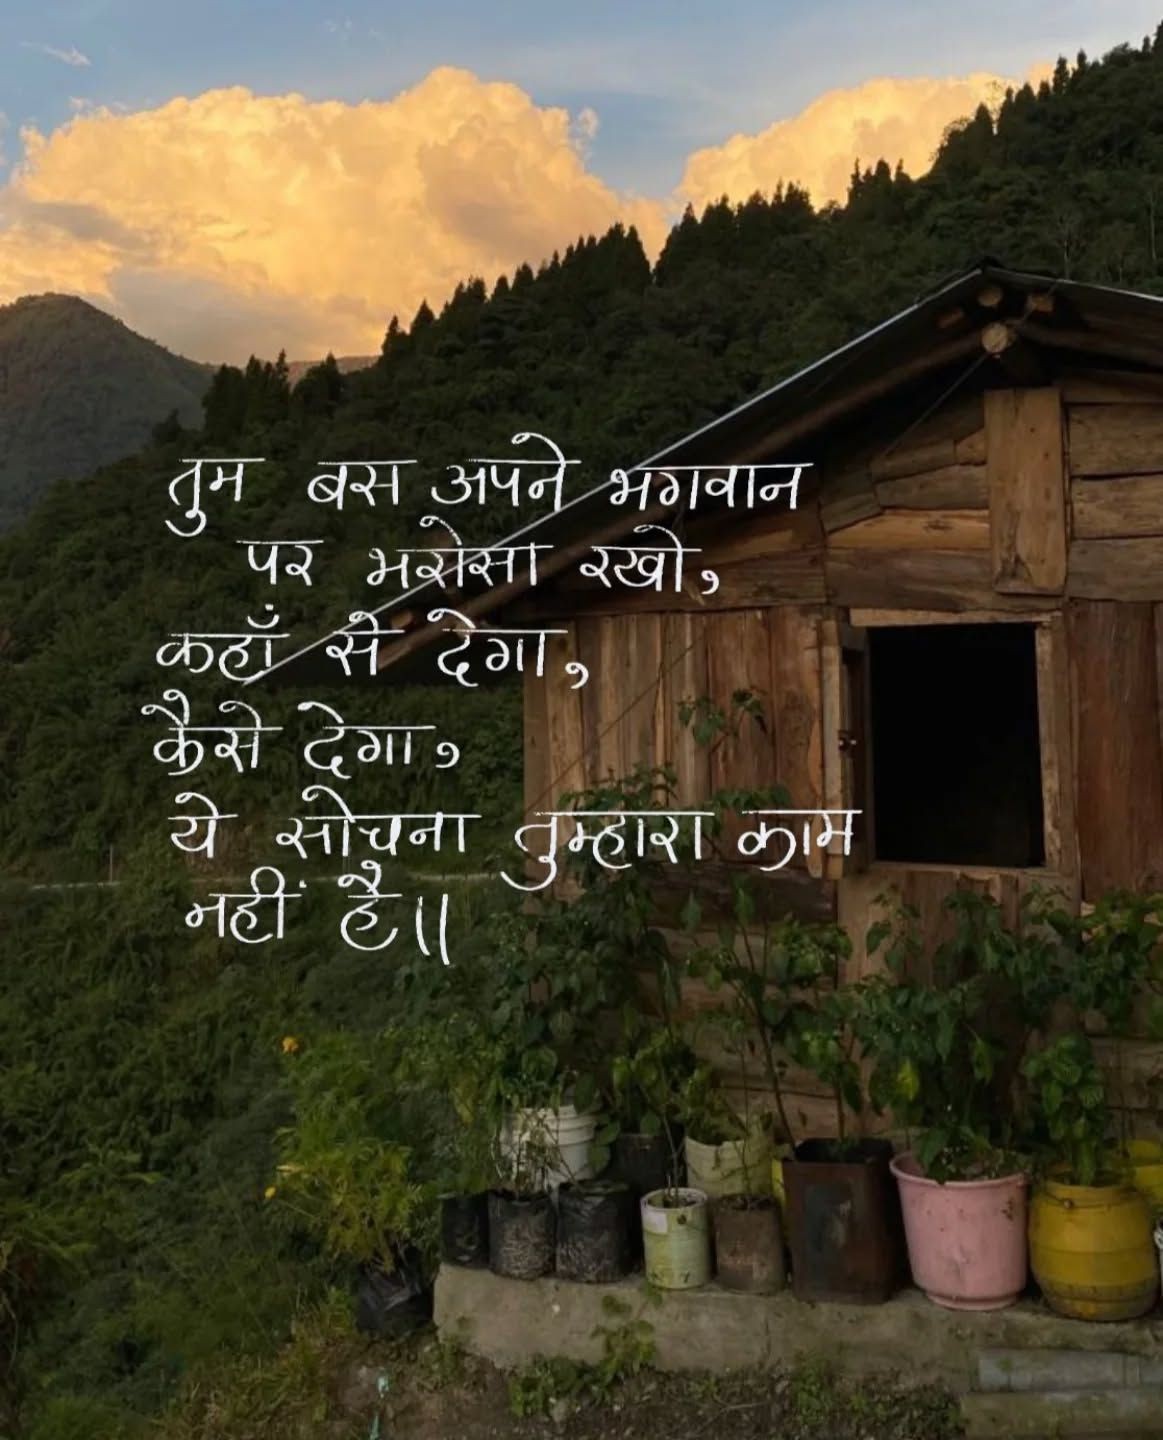 तुम बस अपने भगवान
पर भरोसा रखो,
कहाँ से देगा,
कैसे देगा,
ये सोचना तुम्हारा काम
नहीं है॥